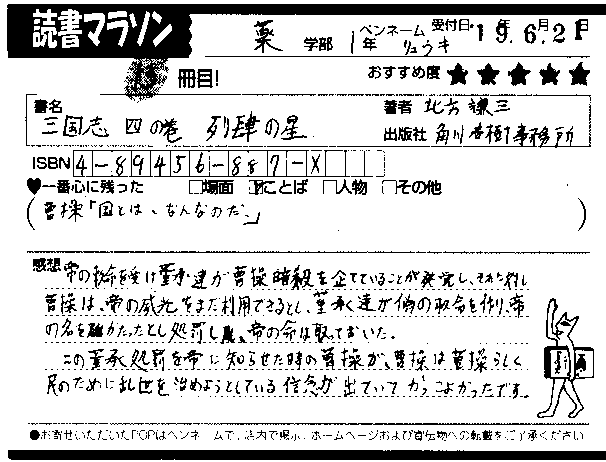 読書マラソン
薬 学部 1年 ペンネーム リュウキ 受付日・19年6月21日
13冊目! おすすめ度 ★★★★★
書名 三国志 四の巻 列肆の星
著者 北方謙三
出版社 角川春樹事務所
ISBN 4-89456-887-X
♥一番心に残った □場面 ☑ことば □人物 □その他
(曹操「国とは、なんなのだ。」)
感想 帝の勅命を受け董承達が曹操暗殺を企てていることが発覚し、それに対し
曹操は、帝の威光をまだ利用できるとし、董承達が偽の勅命を作り、帝
の名を騙かたったとし処罰し、帝の命は取っておいた。
この董承処罰を帝に知らせた時の曹操が、曹操は曹操らしく
民のために乱世を治めようとしている信念が出ていてかっこよかったです。
●お寄せいただいたPOPはペンネームで、店内で掲示、ホームページおよび宣伝物への転載をご了承ください